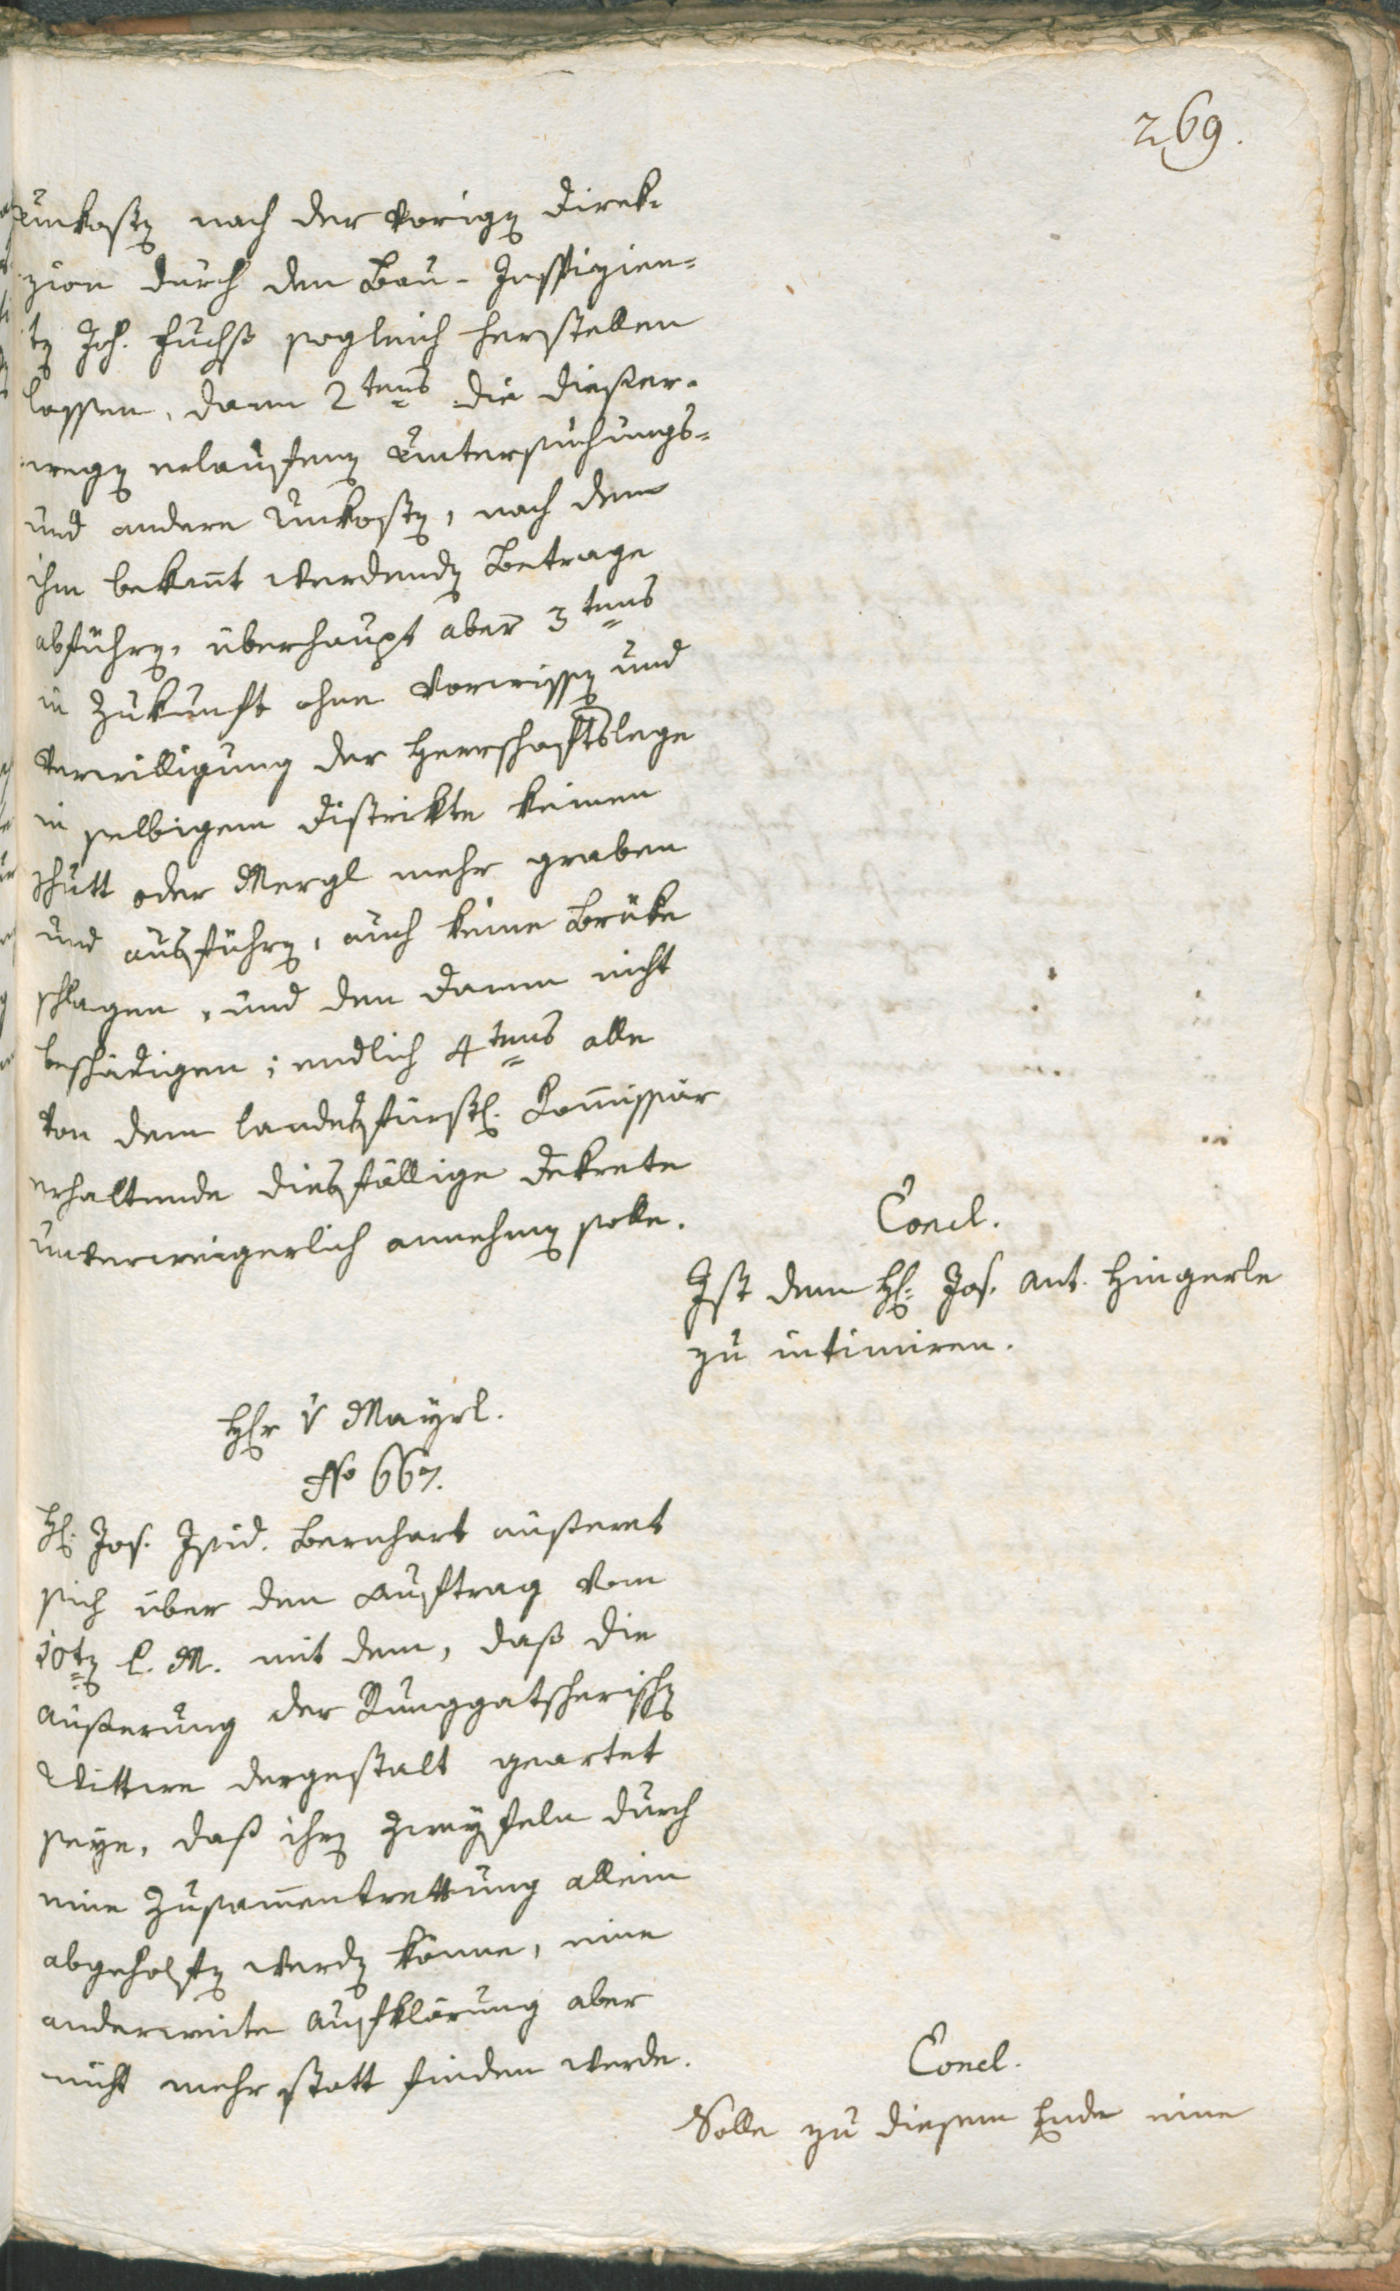 269.
Unkosten nach der vorigen Direk-
zion durch den Bau-Inspizien-
ten Joh. Fuchs sogleich herstellen
lassen, dann 2tens die dießer-
wegen erlaufenen Untersuchungs-
und andere Unkosten, nach dem
ihm bekannt werdenden Betrage
abführen, überhaupt aber 3tens
in Zukunft ohne Vorwissen und
Verwilligung der Herrschaftslege
in selbigem Distrikte keinen
Schutt oder Mergl mehr graben
und ausführen, auch keine Brüke
schlagen, und den Damm nicht
beschädigen; endlich 4tens alle
von dem landesfürstl. Commissär
erhaltende diesfällige Dekrete
unverweigerlich annehmen solle.
Concl.
Ist dem H: Jos. Ant. Hingerle
zu intimiren.
Hr v Mayrl.
No 667.
H: Jos. Isid. Bernhart äußeret
sich über den Auftrag vom
10ten l. M. mit dem, daß die
Äußerung der Runggatscherischen
Wittwe dergestalt geartet
seye, daß ihren Zweyfeln durch
eine Zusammentrettung allein
abgeholfen werden könne, eine
anderweite Aufklärung aber
nicht mehr statt finden werde.
Concl.
Solle zu diesem Ende eine